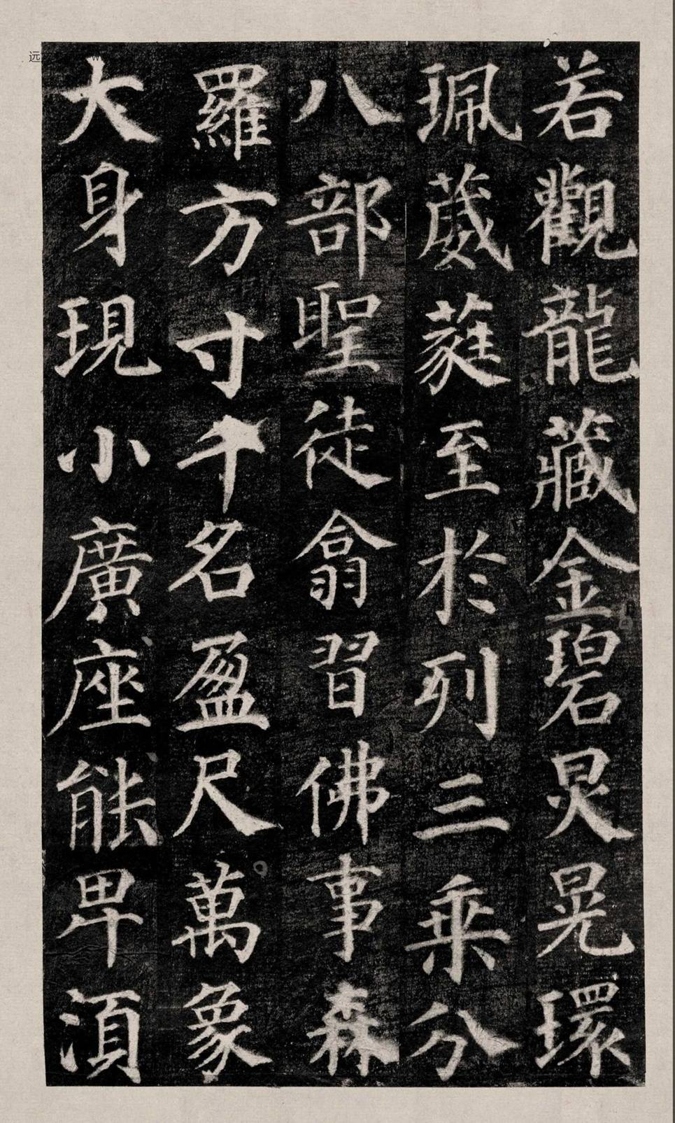 若觀龍藏金碧炅晃環
珮葳蕤至於列三乘分
八部聖徒翕習佛事森
羅方寸千名盈尺萬象
大身現小廣座能卑湏
远